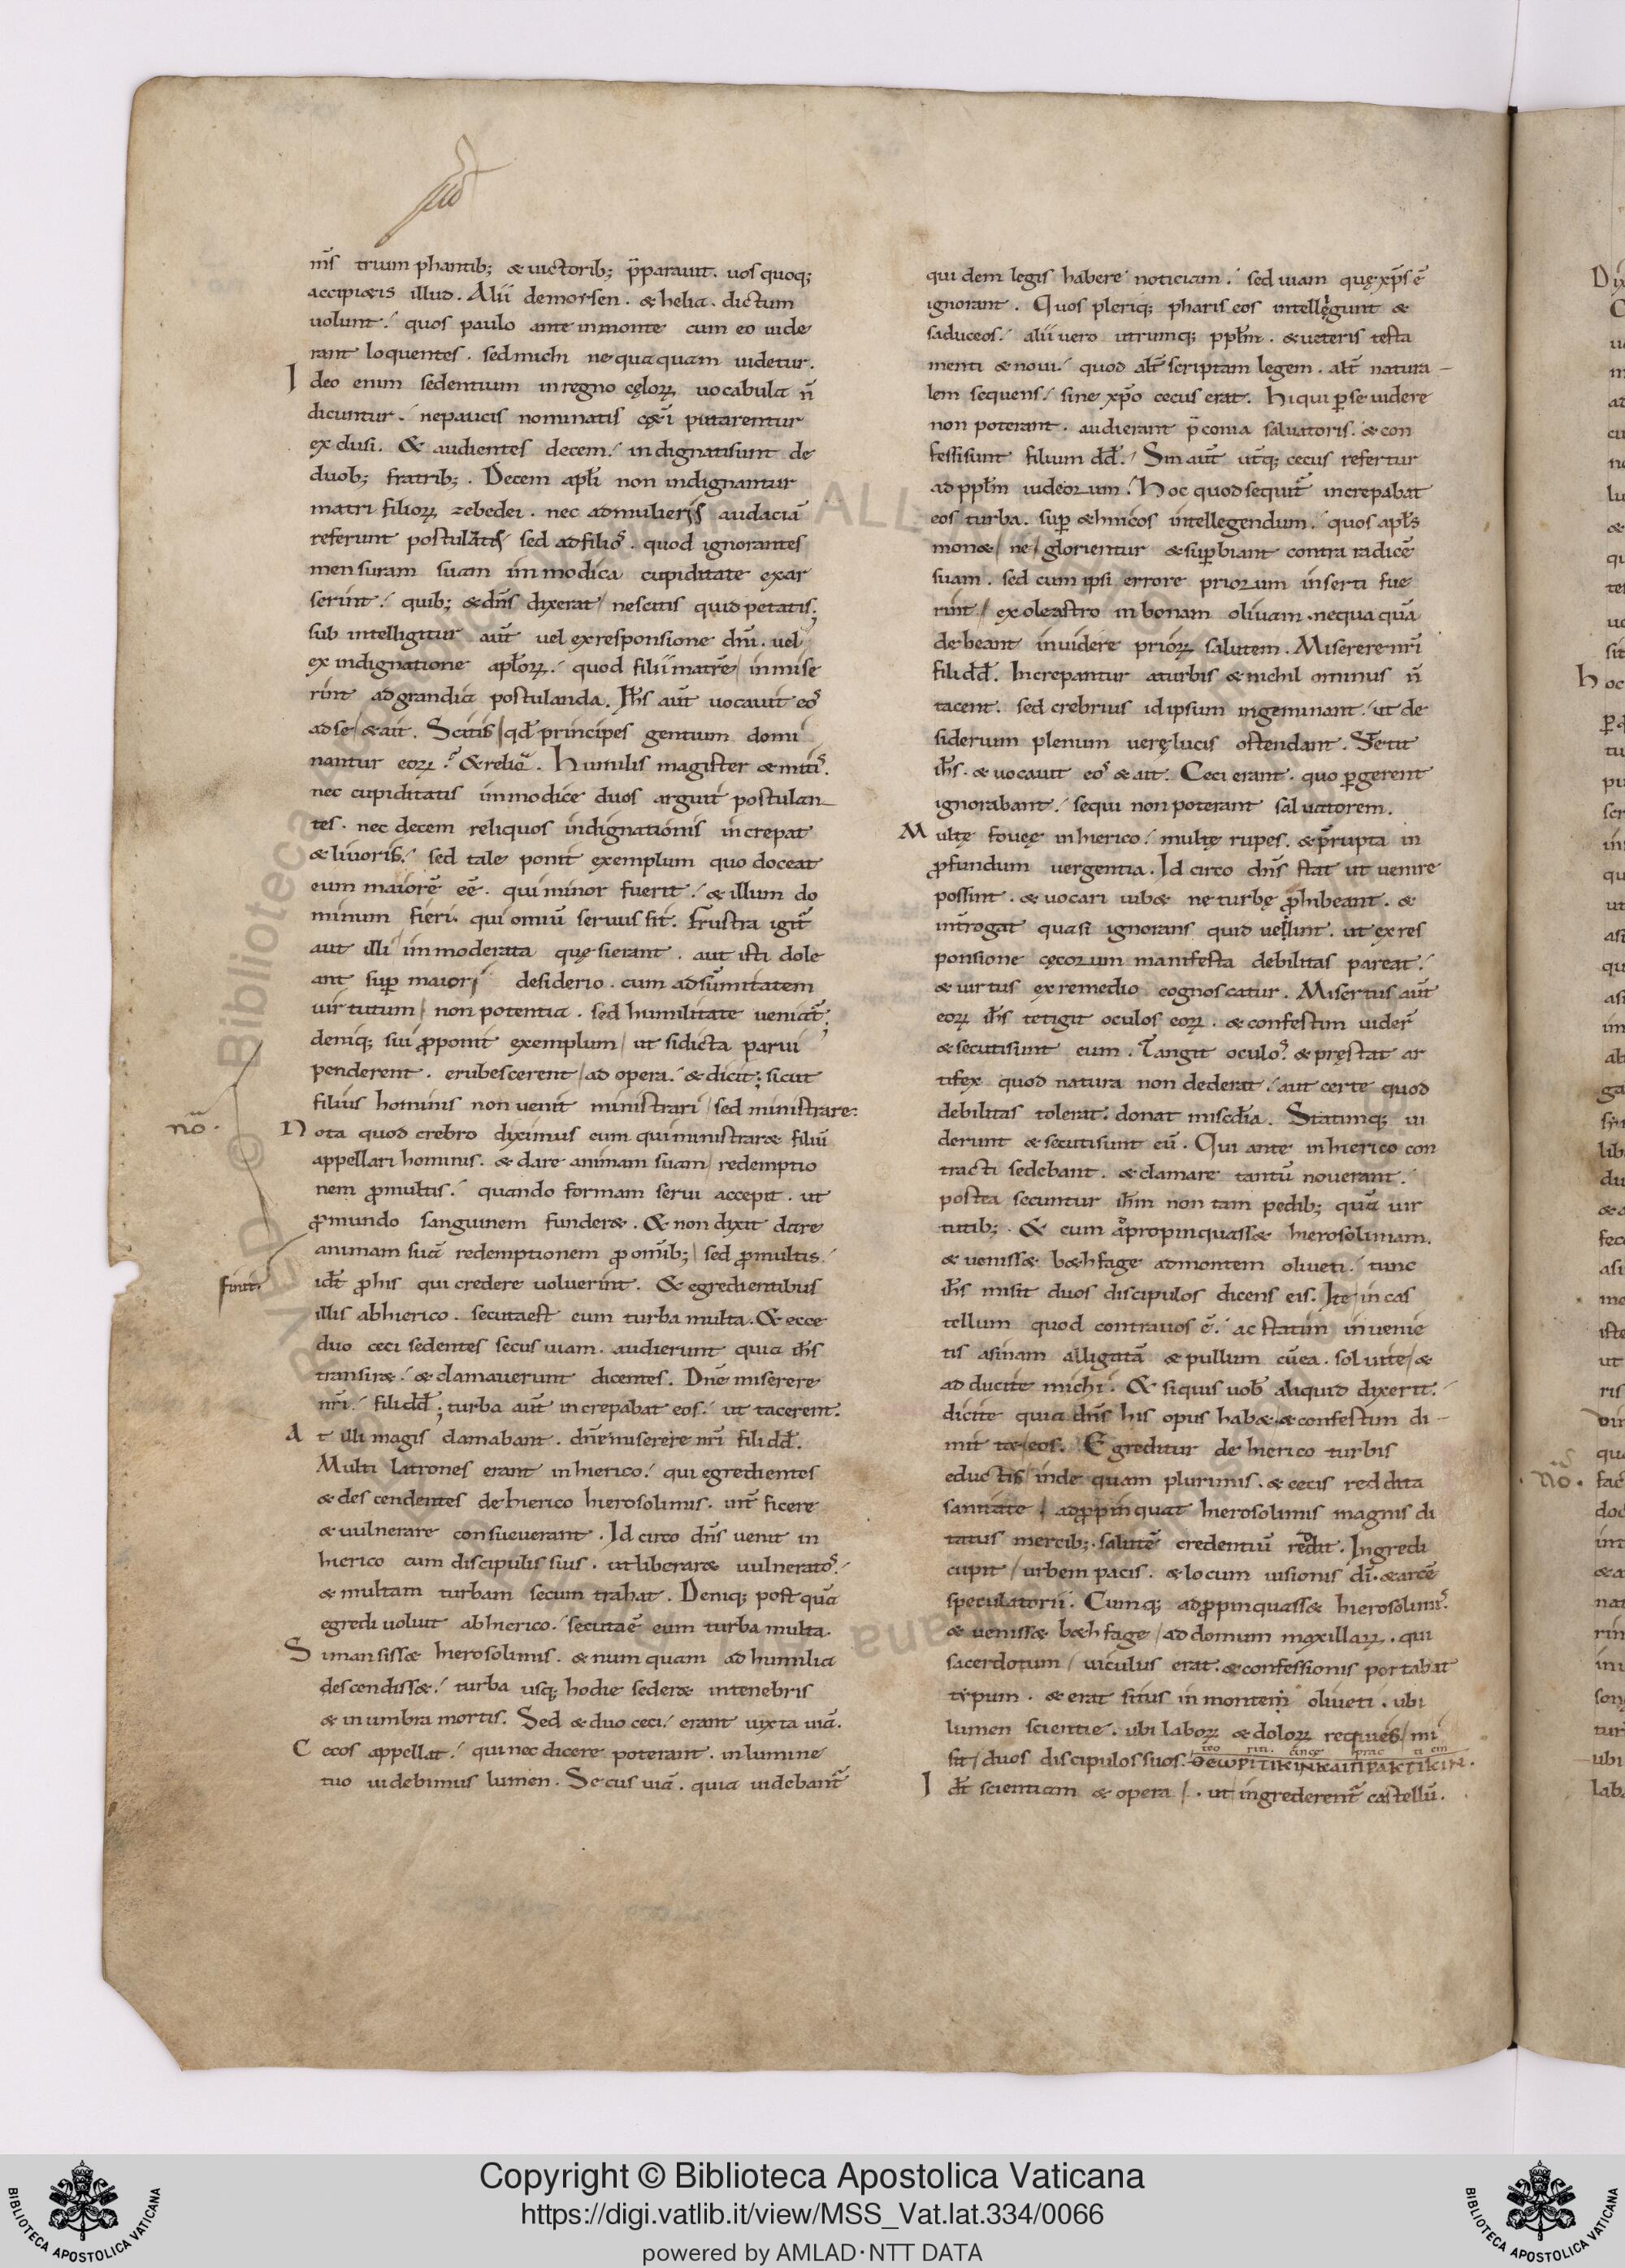 nr̄s trium phantib; & uictorib; p̄parauit. uos quoq;
accipiaeis illud. Alii demorsen. & helia. dictum
uolunt. quos paulo ante inmonte cum eo uide
rant loquentes. sed michi nequaquam uidetur.
Ideo enim sedentium inregno cęloꝝ uocabula n̄
dicuntur. nepaucis nominatis cęt̄i putarentur
exclusi. & audientes decem. indignatisunt de
duob; fratrib;. Decem apl̄i non indignantur
matri filioꝝ zebedei. nec admulieris audaciā
referunt postulātis sed adfilios. quod ignorantes
mensuram suam immodica cupiditate exar
serint. quib; & dn̄s dixerat nescitis quid petatis;
sub intelligitur aūt uel exresponsione dn̄i. uel
exindignatione apl̄oꝝ. quod filii matrē inmise
rint adgrandia postulanda. Ih̄s aūt uocauit eos
adse & ait. Scitis qd̄ principes gentium domi
nantur eoꝝ. & reliq̄. Humilis magister & mitis.
nec cupiditatis immodice duos arguit postulan
tes. nec decem reliquos indignationis increpat
& liuoris. sed tale ponit exemplum quo doceat
eum maiorē eē. qui minor fuerit. & illum do
minum fieri. qui omiū seruus sit. Frustra igit̄
aut illi immoderata quęsierant. aut isti dole
ant suꝑ maiori desiderio. cum adsūmitatem
uirtutum non potentia. sed humilitate ueniat̄;
deniq; sui ꝓponit exemplum ut sidicta parui
penderent. erubescerent ad opera. & dicit; sicut
filius hominis non uenit ministrari sed ministrare.
nō.
Nota quod crebro diximus eum qui ministrar& filiū
appellari hominis. & dare animam suam redemptio
nem ꝓmultis. quando formam serui accepit. ut
ꝓmundo sanguinem funder&. & non dixit dare
animam suā redemptionem ꝓ omib; sed ꝓmultis.
finit.
id̄t ꝓhis qui credere uoluerint. & egredientibus
illis abhierico. secutaest eum turba multa. & ecce
duo ceci sedentes secus uiam. audierunt quia ih̄s
transir&. & clamauerunt dicentes. Dn̄e miserere
nr̄i. fili dd̄; turba aūt increpabat eos. ut tacerent.
At illi magis clamabant. dn̄e miserere nr̄i fili dd̄.
Multi latrones erant inhierico. qui egredientes
& descendentes dehierico hierosolimis. int̄ficere
& uulnerare consueuerant. Id circo dn̄s uenit in
hierico cum discipulis suis. utliberar& uulneratos.
& multam turbam secum trahat. Deniq; postquā
egredi uoluit abhierico. secutaē eum turba multa.
Simansiss& hierosolimis. & numquam ad humilia
descendiss&. turba usq; hodie seder& intenebris
& in umbra mortis. Sed & duo ceci. erant iuxta uiā.
Cecos appellat. qui nec dicere poterant. inlumine
tuo uidebimus lumen. Secus uiā. quia uidebant̄
quidem legis habere noticiam. sed uiam quęxp̄s ē
ignorant. Quos pleriq; phariseos intellegunt &
saduceos. alii uero utrumq; ppl̄m. & ueteris testa
menti & noui. quod alt̄ scriptam legem. alt̄ natura
lem sequens. sine xp̄o cecus erat. Hi qui ꝑse uidere
non poterant. audierant p̄conia saluatoris. & con
fessisunt filium dd̄. Sin aūt ut̄q; cecus refertur
ad ppl̄m iudeorum. Hoc quod sequit̄ increpabat
eos turba. suꝑ &hnicos intellegendum. quos apl̄s
mon& ne glorientur & suꝑbiant contra radicē
suam. sed cum ipsi errore priorum inserti fue
rint exoleastro in bonam oliuam. nequaquā
debeant inuidere prioꝝ salutem. Miserere nr̄i
fili dd̄. Increpantur aturbis & nichil ominus n̄
tacent. sed crebrius idipsum ingeminant. ut de
siderium plenum uerę lucis ostendant. Stetit
ih̄s. & uocauit eos & ait. Ceci erant. quo ꝑgerent
ignorabant. sequi non poterant saluatorem.
Multę fouęę inhierico. multę rupes. & p̄rupta in
ꝓfundum uergentia. Id circo dn̄s stat ut uenire
possint. & uocari iub& ne turbę ꝓhibeant. &
int̄rogat quasi ignorans quid uellint. ut ex res
ponsione cęcorum manifesta debilitas pareat.
& uirtus exremedio cognoscatur. Misertus aūt
eoꝝ ih̄s tetigit oculos eoꝝ. & confestim uider̄
& secutisunt eum. Tangit oculos. & pręstat ar
tifex quod natura non dederat. aut certe quod
debilitas tolerat. donat miscd̄ia. Statimq; ui
derunt & secutisunt eū. Qui ante inhierico con
tracti sedebant. & clamare tantū nouerant.
postea secuntur ih̄m non tam pedib; quā uir
tutib;. & cum apropinquass& hierosolimam.
& ueniss& b&hfage admontem oliueti. tunc
ih̄s misit duos discipulos dicens eis. Ite in cas
tellum quod contrauos ē. ac statim inuenie
tis asinam alligatā & pullum cū ea. soluite &
adducite michi. & siquis uob aliquid dixerit.
dicite quia dn̄s his opus hab& & confestim di
mit t& eos. Egreditur de hierico turbis
eductis inde quam plurimis. & cecis reddita
sanitate adꝓpinquat hierosolimis magnis di
tatus mercib;. salutē credentiū reddit. Ingredi
cupit urbem pacis. & locum uisionis dī. & arcē
speculatorii. Cumq; adꝓpinquass& hierosolimis.
& ueniss& b&hfage ad domum maxillaꝝ. qui
sacerdotum uiculus erat. & confessionis portabat
typum. & erat situs in montem oliueti. ubi
lumen scientie. ubi laboꝝ & doloꝝ requies mi
sit duos discipulos suos. ΘΕωΡΙΤΙΚΙΝΚΑΙΠΡΑΚΤΙΚΙΝ.
Id̄t scientiam & opera. ut ingrederent̄ castellū.
nō.